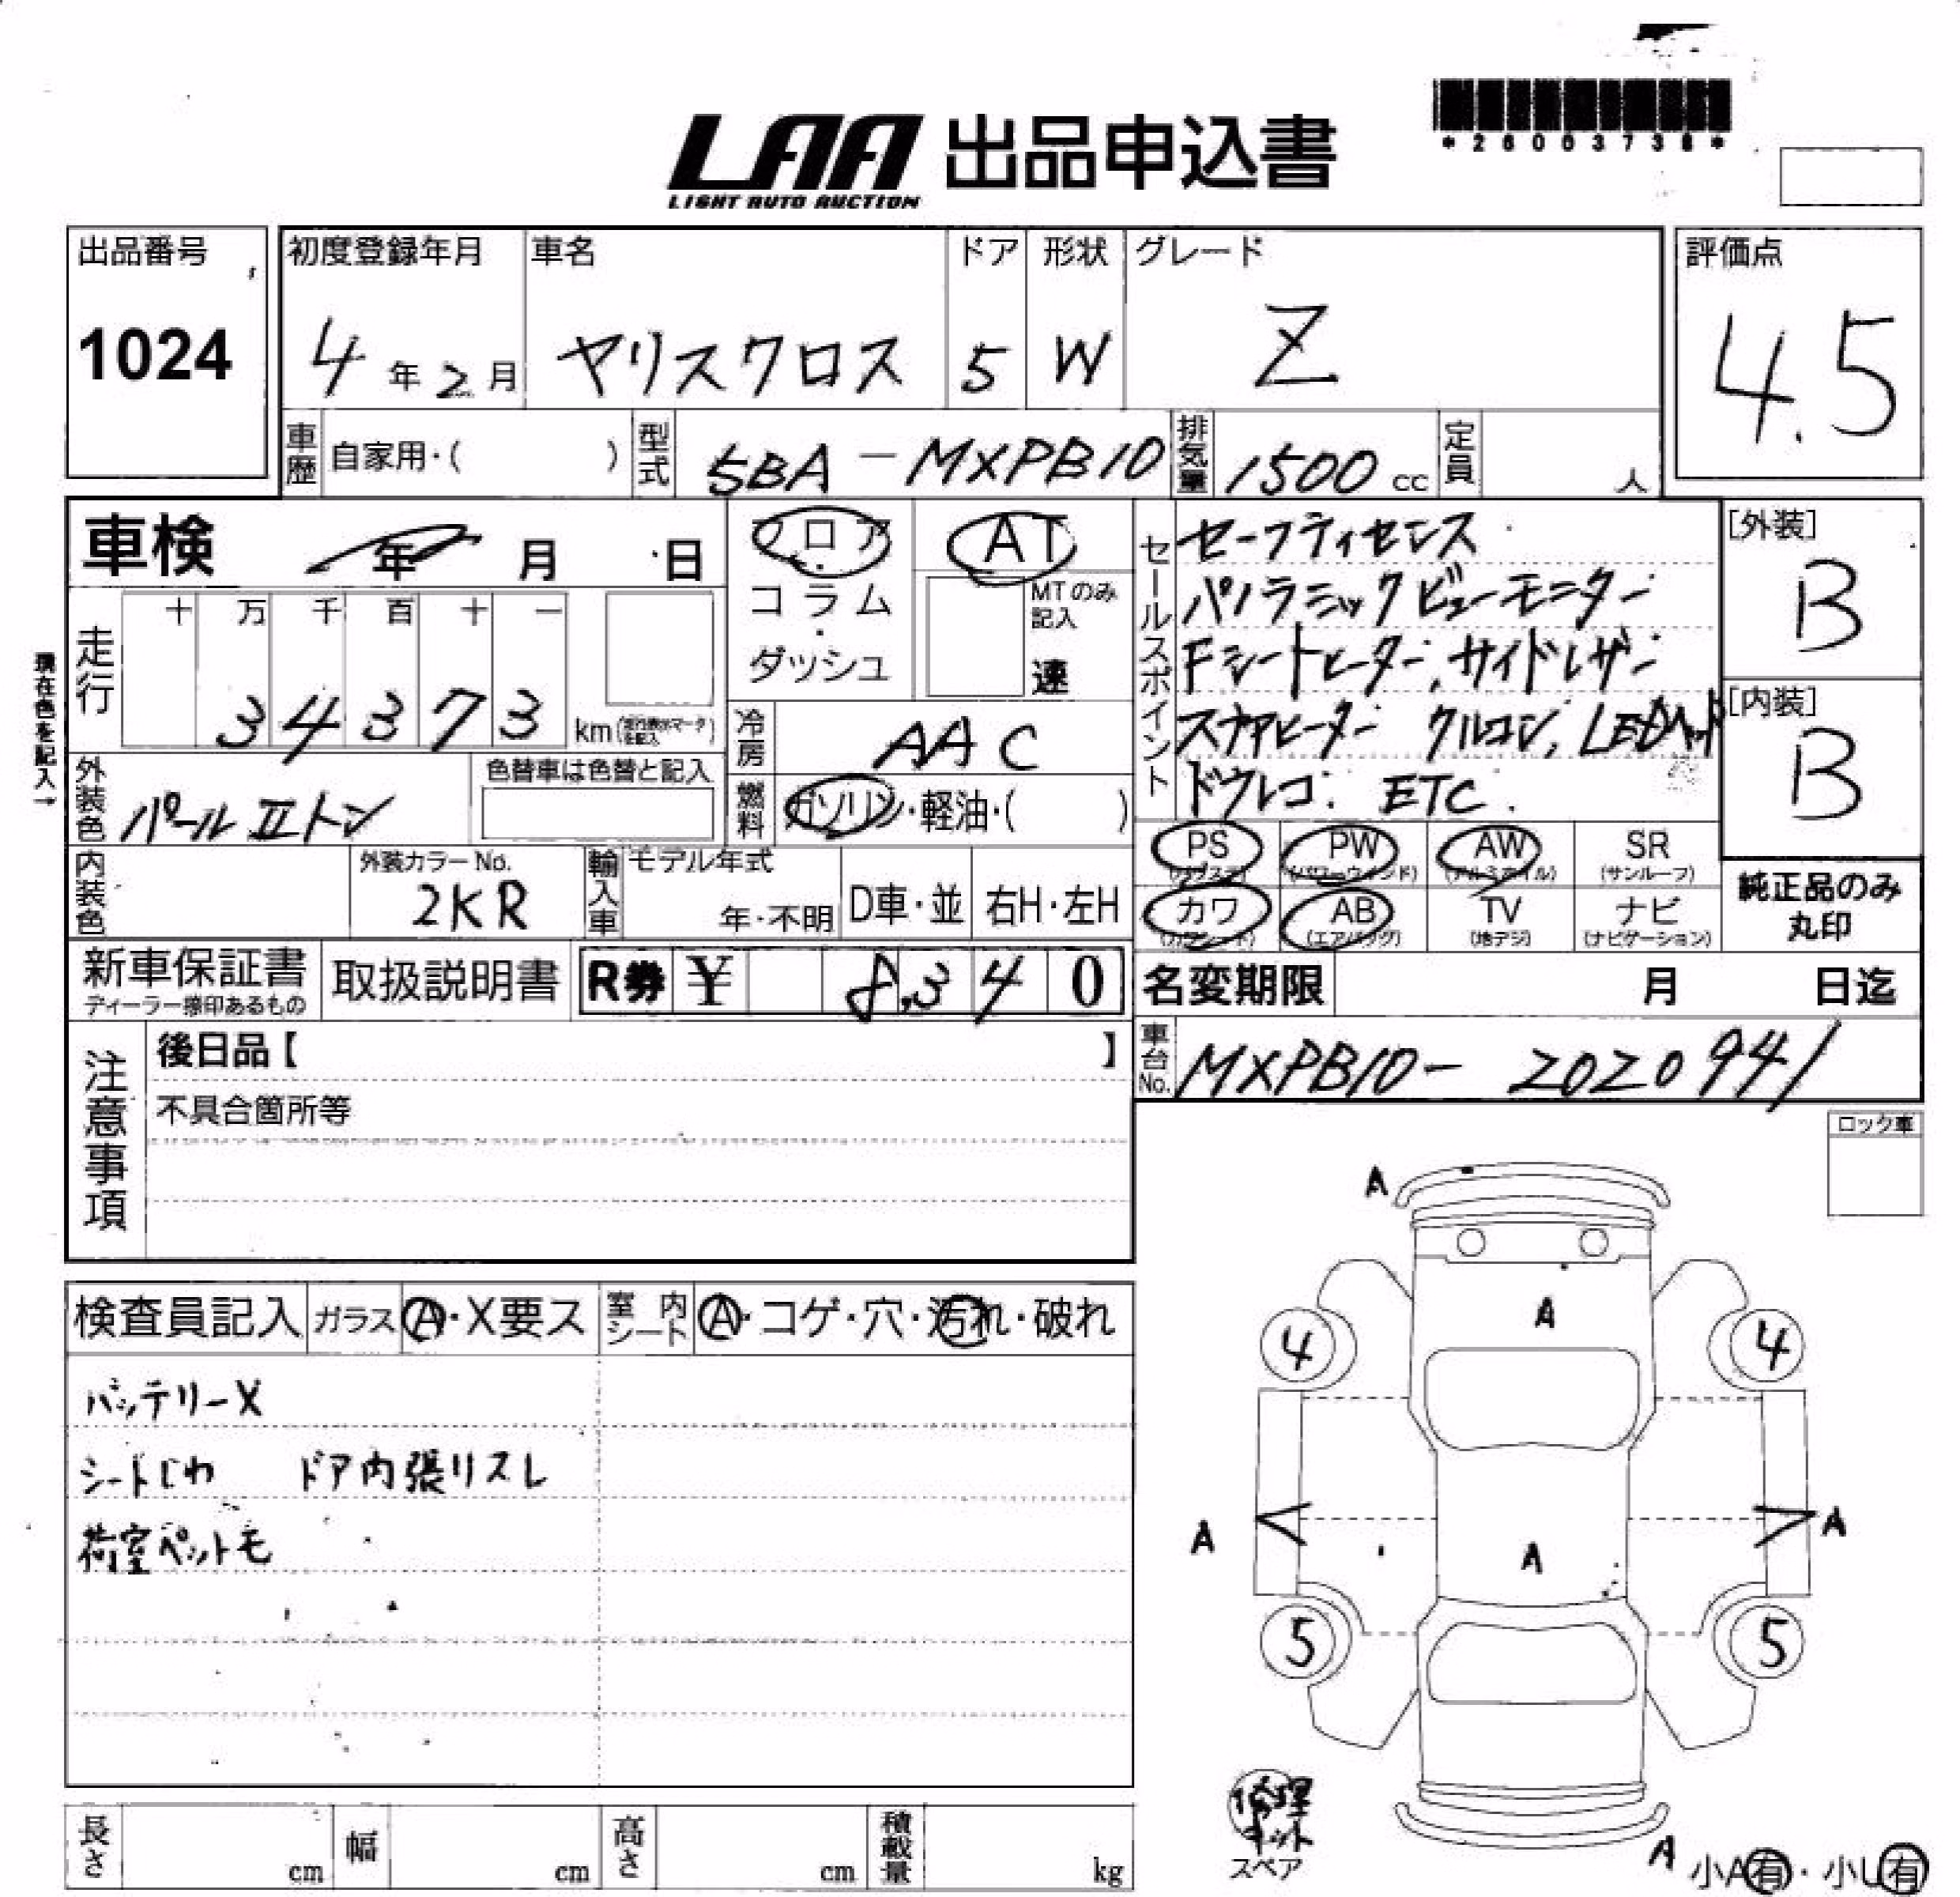 LAA 出品申込書
LIGHT AUTO AUCTION
出品番号 1024
初度登録年月 4年2月
車名 ヤリスクロス
ドア 5
形状 W
グレード Z
評価点 4.5
車歴 自家用・( )
型式 5BA-MXPB10
排気量 1500cc
定員 人
車検 年 月 日
フロア
コラム
ダッシュ
AT
MTのみ記入
速
セールスポイント
セーフティセンス
パノラミックビューモニター
Fシートヒーター、サイドレザー
ステアヒーター クルコン、LEDヘッド
ドラレコ. ETC.
[外装] B
[内装] B
現在色を記入→
走行 十 万 千 百 十 一
34373 km
冷房 AAC
外装色 パールIIトン
色替車は色替と記入
燃料 ガソリン・軽油・( )
内装色
外装カラーNo. 2KR
輸入車 モデル年式 年・不明
D車・並
右H・左H
PS (パワステ)
PW (パワーウィンド)
AW (アルミホイル)
SR (サンルーフ)
カワ
AB (エアバッグ)
TV (地デジ)
ナビ (ナビゲーション)
純正品のみ丸印
新車保証書
ディーラー捺印あるもの
取扱説明書
R券 ¥ 8,340
名変期限 月 日迄
注意事項
後日品【 】
不具合箇所等
車台No. MXPB10-2020941
ロック車
検査員記入
ガラス A・X要ス
室内シート A・コゲ・穴・汚れ・破れ
バッテリーX
シートしわ ドア内張りスレ
荷室ペットモ
A
A
4 4
A A A
5 5
修理キット
スペア
A
小A有・小U有
長さ cm
幅 cm
高さ cm
積載量 kg